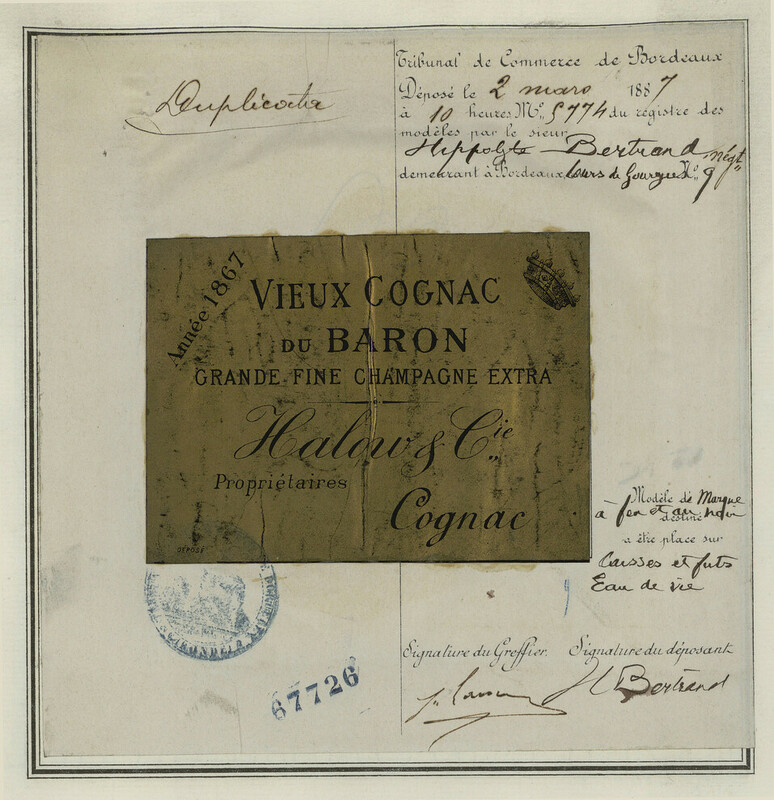 Duplicata
Tribunal de Commerce de Bordeaux
Déposé le 2 mars 1887
à 10 heures Nº 5774 du régistre des
modèles par le sieur
Hippolyte Bertrand négt
demeurant à Bordeaux, Cours de Gourgues Nº 9
Année 1867
VIEUX COGNAC
DU BARON
GRANDE FINE CHAMPAGNE EXTRA
Halow & Cie
Propriétaires
Cognac
DÉPOSÉ
Modèle de Marque
à feu et au noir
destiné
a être place sur
Caisses et futs
Eau de vie
GIRONDE
67726
Signature du Greffier. Signature du déposant
H Bertrand